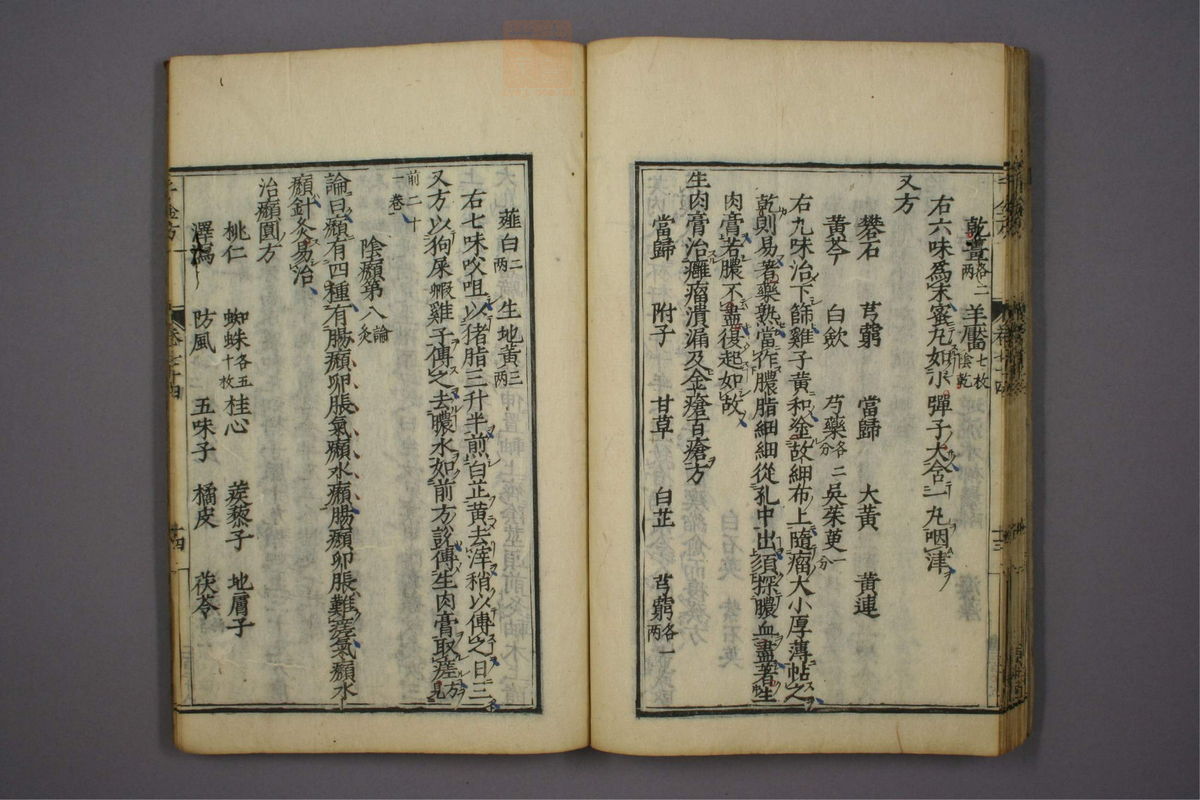 乾薑各二兩 羊靨七枚陰乾
右六味為末蜜丸如小彈子大含一丸咽津
又方
礬石 芎藭 當歸 大黃 黃連
黃芩 白歛 芍藥各二分 吳茱萸一分
右九味治下篩雞子黃和塗故細布上隨瘤大小厚薄帖之
乾則易著藥熟當作膿脂細細從孔中出須探膿血盡著生
肉膏若膿不盡復起如故
生肉膏治癰瘤潰漏及金瘡百瘡方
當歸 附子 甘草 白芷 芎藭各一兩
薤白二兩 生地黃三兩
右七味㕮咀以猪脂三升半煎白芷黃去滓稍以傅之日三
又方以狗屎蝦雞子傅之去膿水如前方說傅生肉膏取瘥方見
前二十一卷
陰㿗第八論灸
論曰㿗有四種有腸㿗卵脹氣㿗水㿗腸㿗卵脹難瘥氣㿗水
㿗針灸易治
治㿗圓方
桃仁 蜘蛛各五十枚 桂心 蒺藜子 地膚子
澤瀉 防風 五味子 橘皮 茯苓